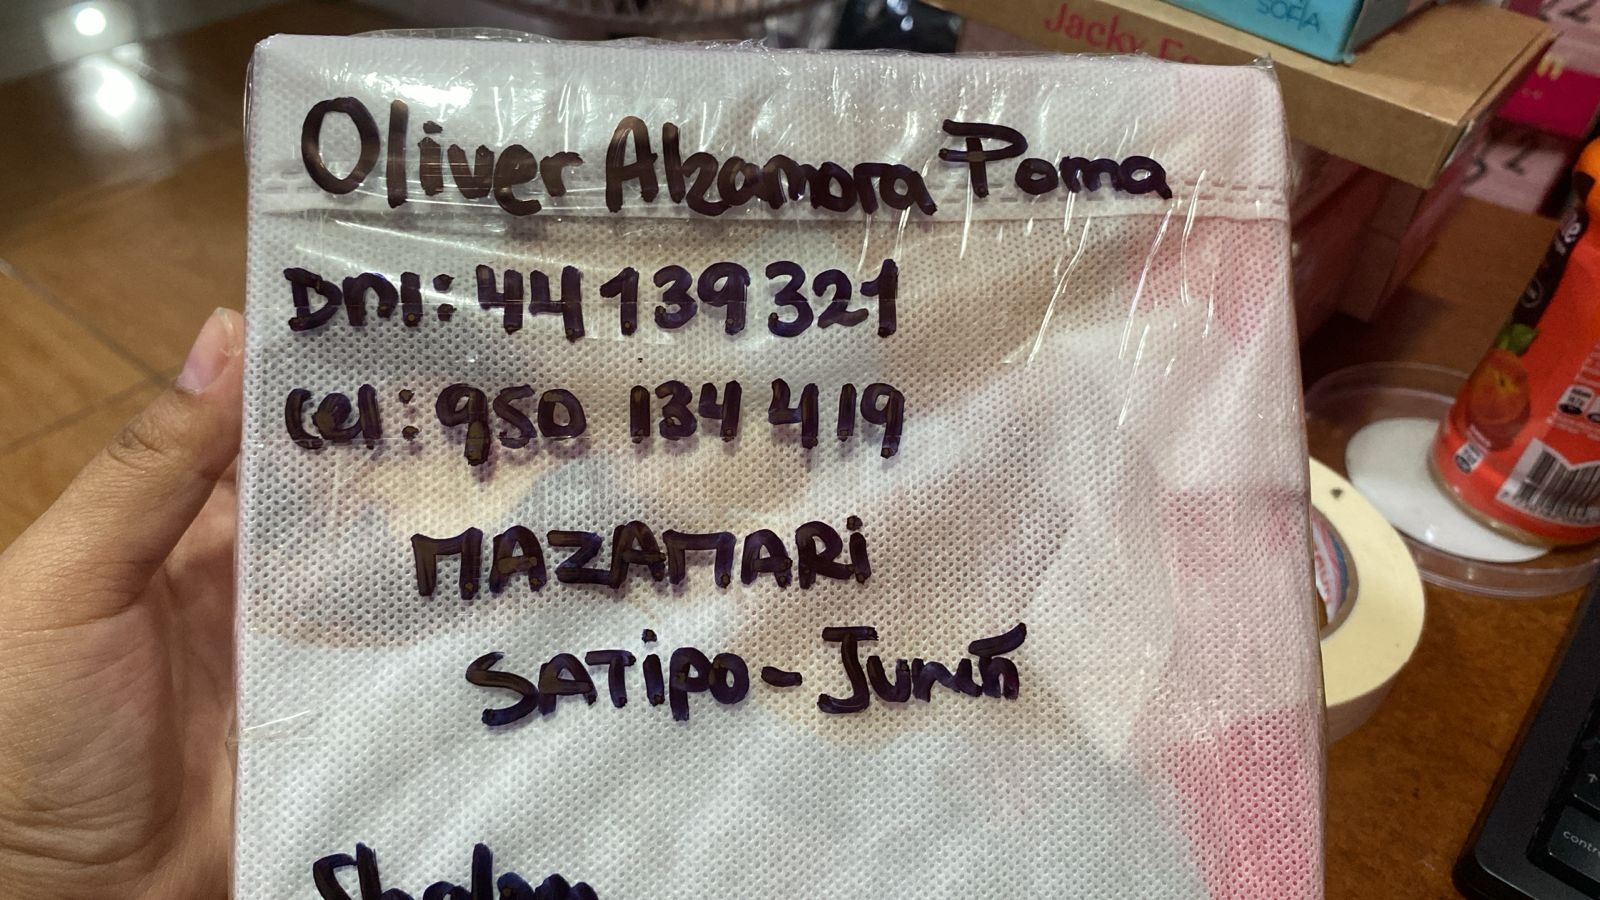 SOFIA
Jacky Fo
Oliver Alzamora Poma
DNI: 44139321
Cel: 950 134 419
MAZAMARi
SATiPO - Junín
Shalom
contro